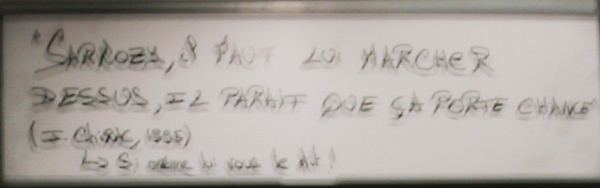 "SARKOZY, il FAUT LUI MARCHER
DESSUS, IL PARAIT QUE ÇA PORTE CHANCE
(J. Chirac, 1995)
↳ Si même lui vous le dit !